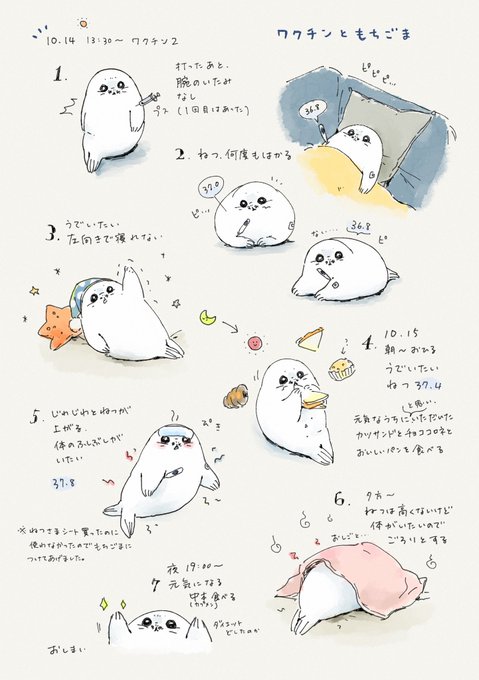 10.14 13:30〜 ワクチン2
ワクチンともちごま
1.
打ったあと、
腕のいたみ
なし
(1回目はあった)
プス
ピピピ…
36.8
2.
ねつ、何度もはかる
37.0
ピ…
ない…
36.8
ピ
3.
うでいたい
左向きで寝れない
4.
10.15
朝〜おひる
うでいたい
ねつ 37.4
と思い…
元気なうちにいただいた
カツサンドとチョココロネと
おいしいパンを食べる
5.
じわじわとねつが
上がる.
体のふしぶしが
いたい
37.8
※ねつさまシート買ったのに
使わなかったのでもちごまに
つけてあげました。
6.
夕方〜
ねつは高くないけど
体がいたいので
ごろりとする
おしごと…
7
夜 19:00〜
元気になる
中本食べる
(カップメン)
ダイエット
どしたのか
おしまい